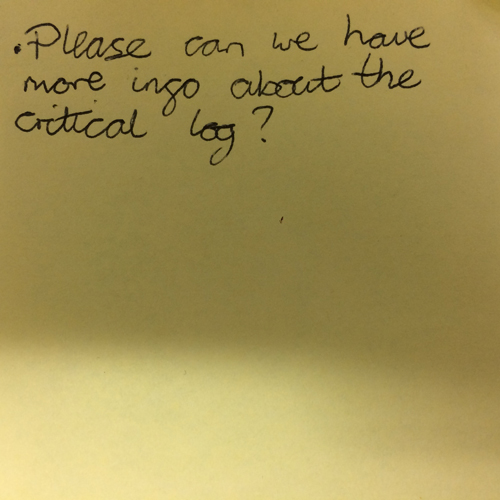 • Please can we have
more info about the
critical log?